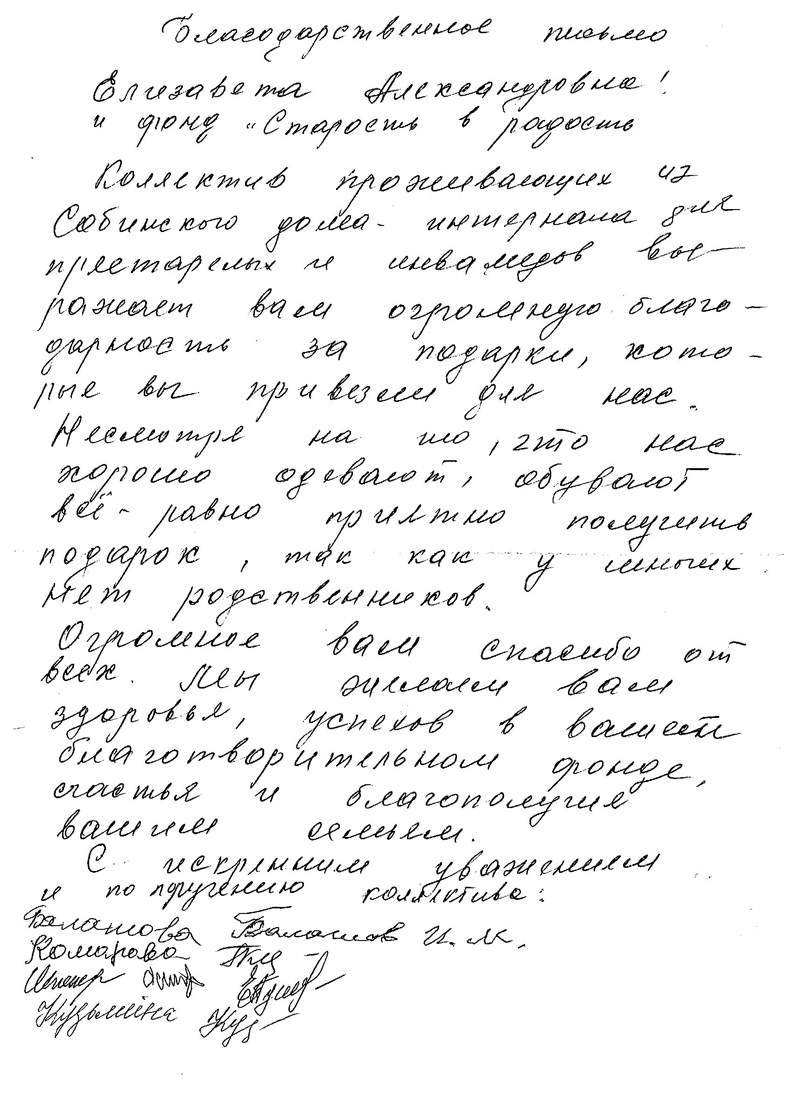 Благодарственное письмо
Елизавета Александровна!
и фонд "Старость в радость
Коллектив проживающих из
Собинского дома-интерната для
престарелых и инвалидов вы-
ражает вам огромную благо-
дарность за подарки, кото-
рые вы привезли для нас.
Несмотря на то, что нас
хорошо одевают, обувают
всё-равно приятно получить
подарок, так как у многих
нет родственников.
Огромное вам спасибо от
всех. Мы желаем вам
здоровья, успехов в вашем
благотворительном фонде,
счастья и благополучия
вашим семьям.
С искренним уважением
и по поручению коллектива:
Балашова Балашов И.М.
Комарова
Кузьмина Куз